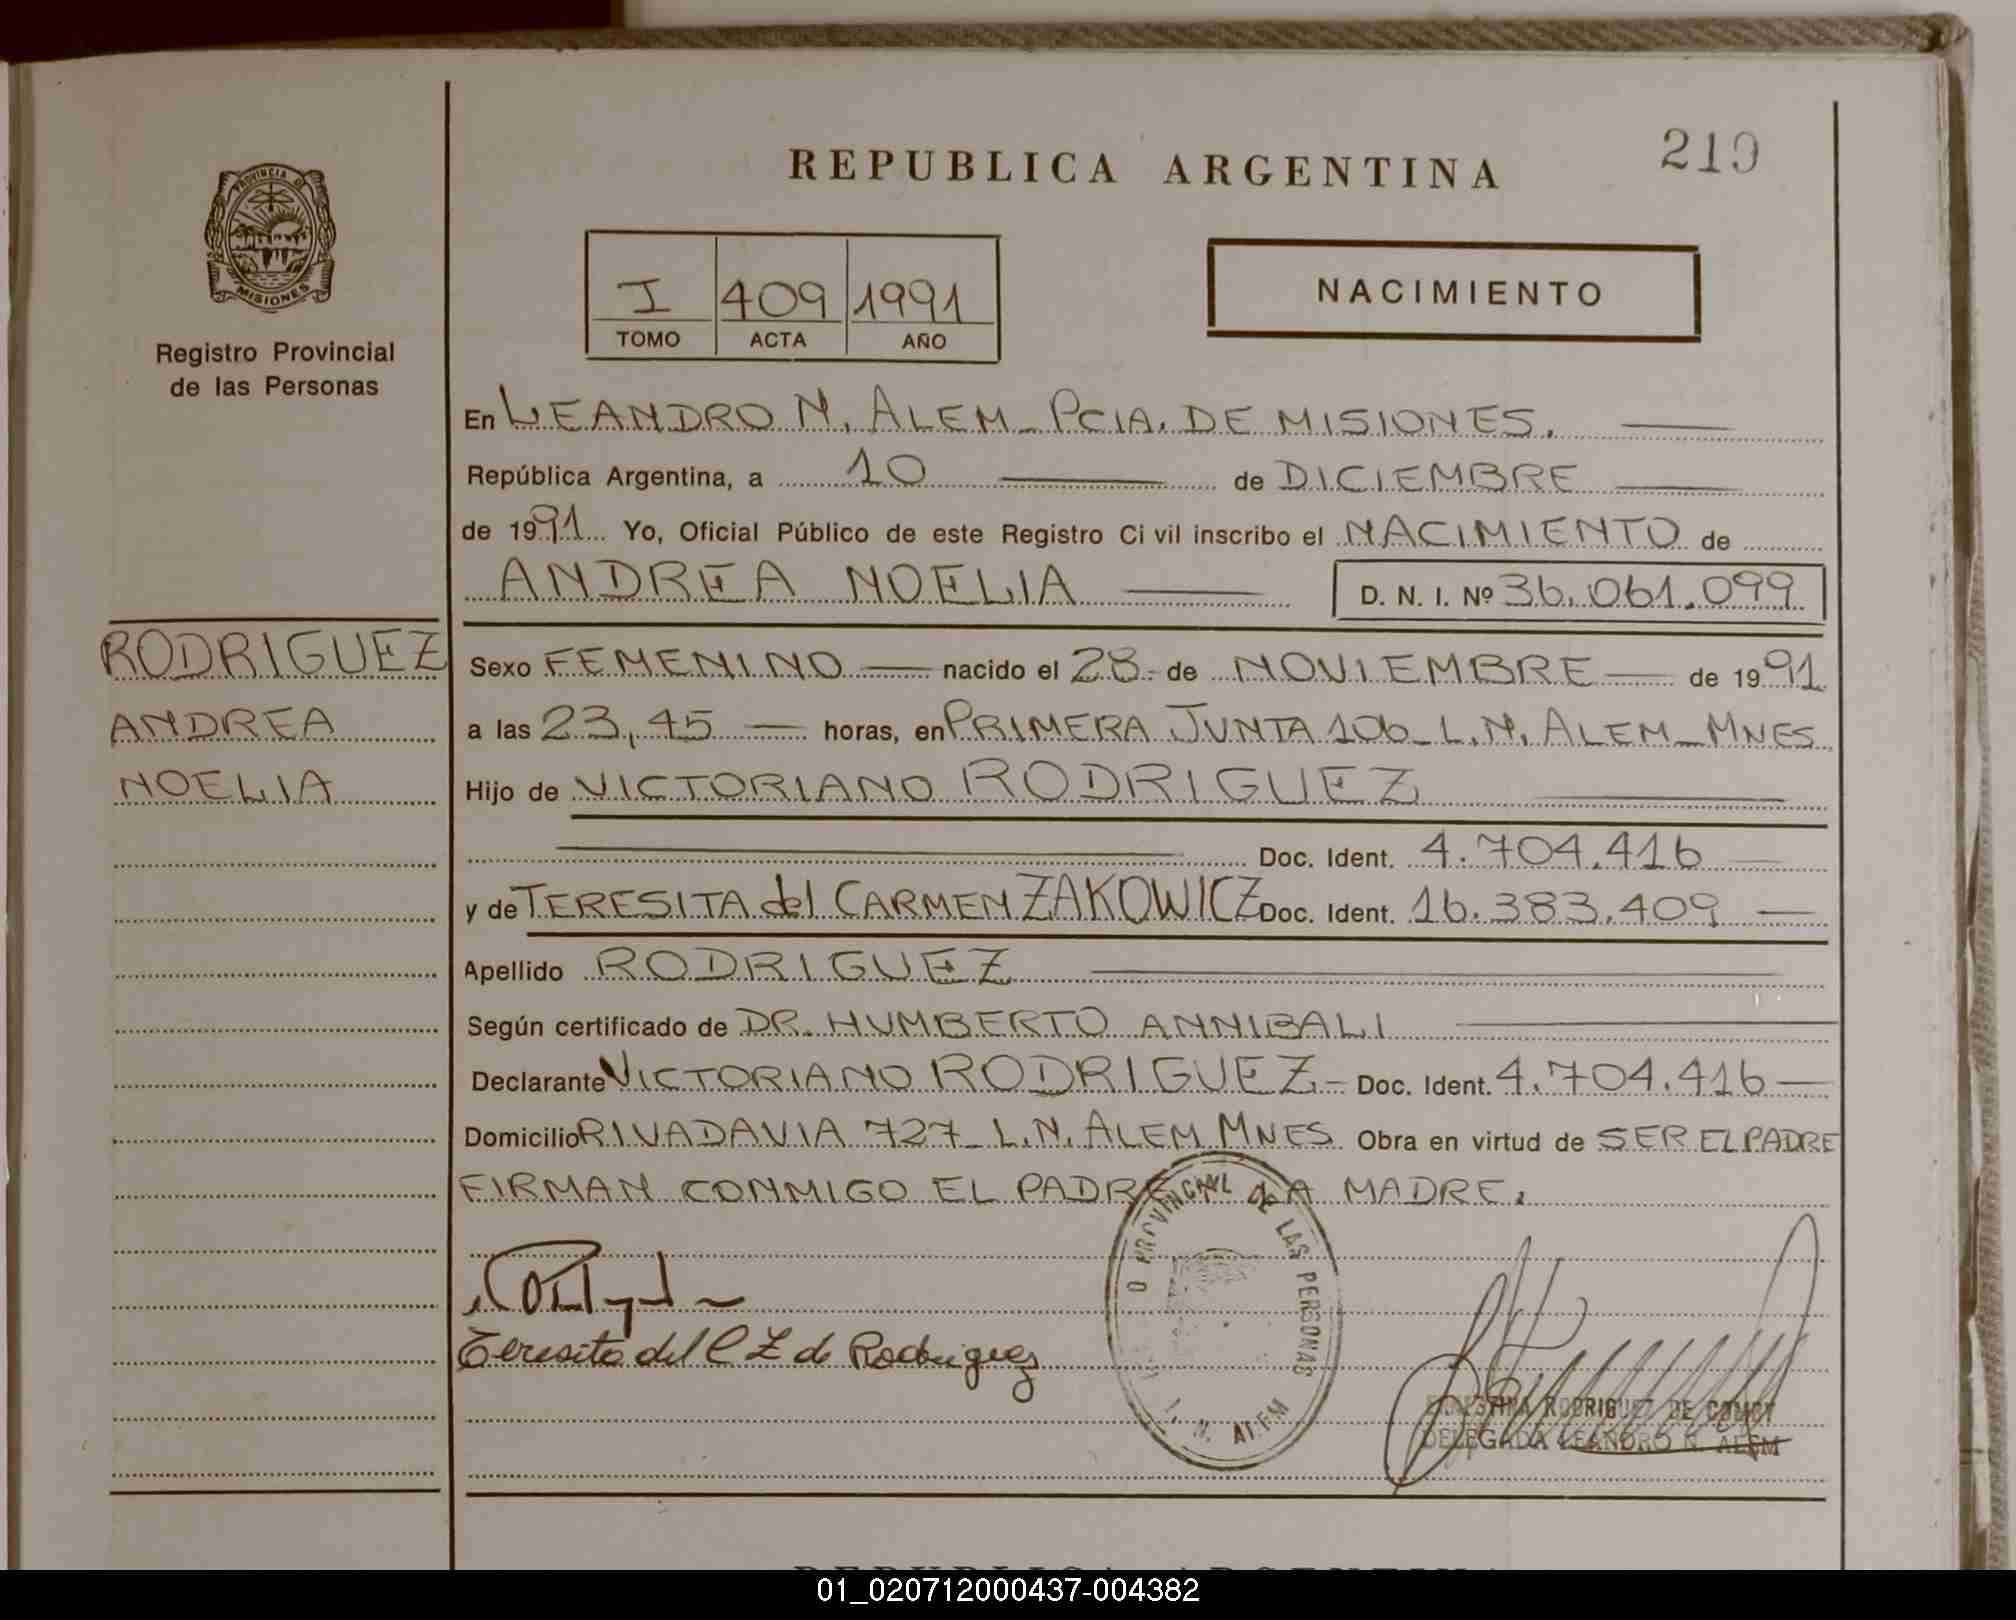 219
REPUBLICA ARGENTINA
PROVINCIA DE
MISIONES
Registro Provincial
de las Personas
I 409 1991
TOMO ACTA AÑO
NACIMIENTO
En LEANDRO N. ALEM_ PCIA. DE MISIONES.
República Argentina, a 10 de DICIEMBRE
de 1991 Yo, Oficial Público de este Registro Civil inscribo el NACIMIENTO de
ANDREA NOELIA D. N. I. Nº 36.061.099
RODRIGUEZ
ANDREA
NOELIA
Sexo FEMENINO nacido el 28 de NOVIEMBRE de 1991
a las 23,45 horas, en PRIMERA JUNTA 106_ L.N. ALEM_ MNES
Hijo de VICTORIANO RODRIGUEZ
Doc. Ident. 4.704.416
y de TERESITA del CARMEN ZAKOWICZ Doc. Ident. 16.383.409
Apellido RODRIGUEZ
Según certificado de DR. HUMBERTO ANNIBALI
Declarante VICTORIANO RODRIGUEZ Doc. Ident. 4.704.416
Domicilio RIVADAVIA 727_ L.N. ALEM MNES Obra en virtud de SER EL PADRE
FIRMAN CONMIGO EL PADRE LA MADRE.
O PROVINCIAL DE LAS PERSONAS
L. N. ALEM
Teresita del C Z de Rodriguez
RODRIGUEZ DE
DELEGADA LEANDRO N. ALEM
REPUBLICA ARGENTINA
01_020712000437-004382